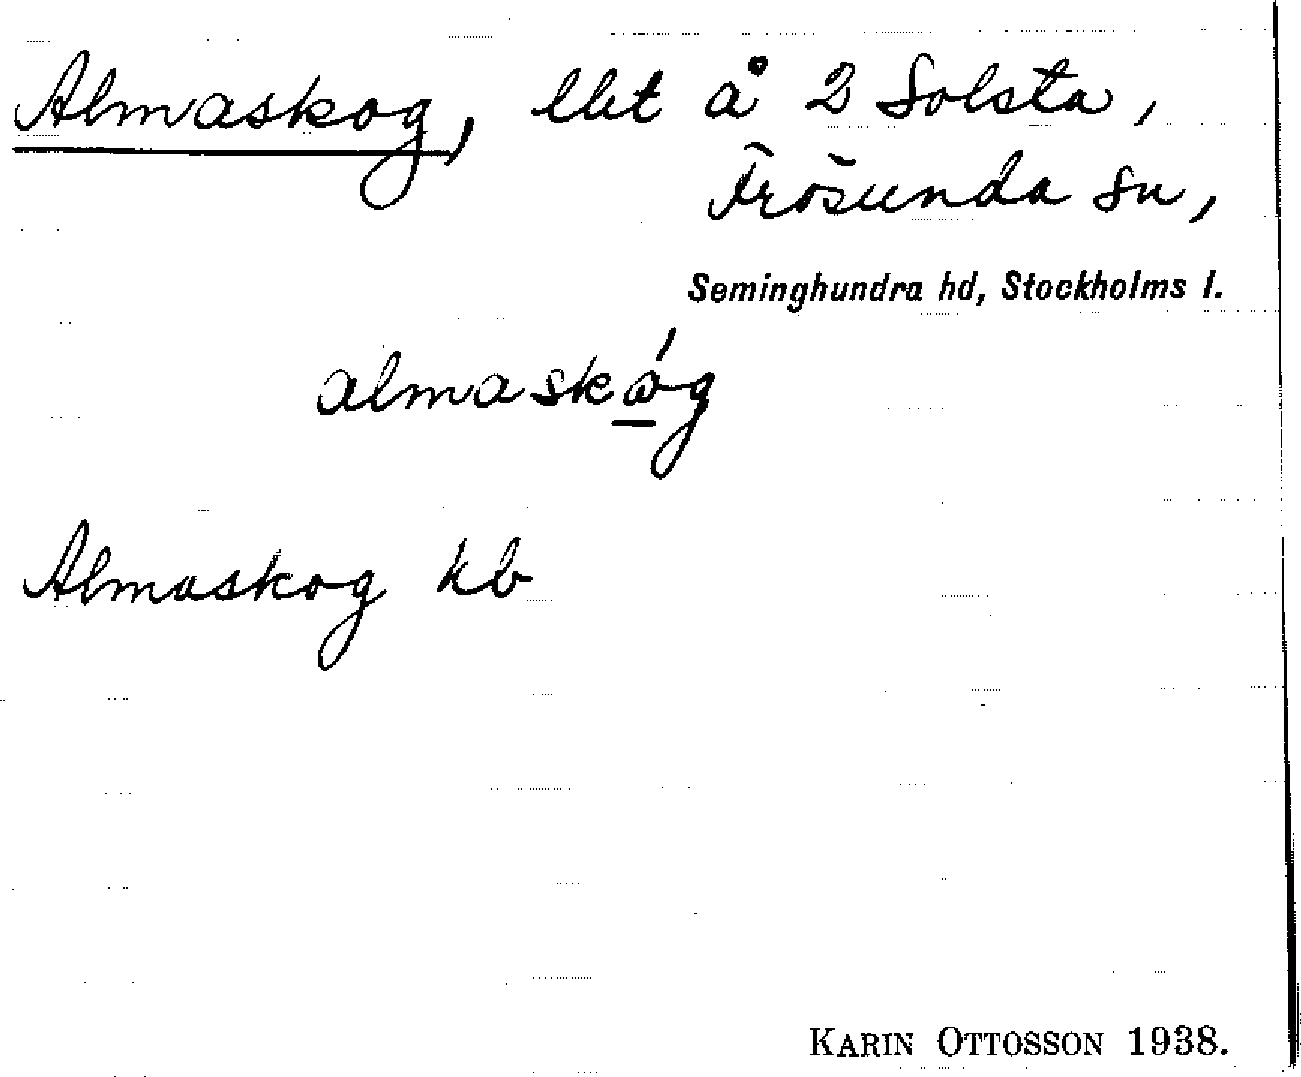 Almaskog, llet å 2 Solsta,
Frösunda sn,
Seminghundra hd, Stockholms l.
almaskóg
Almaskog kb
KARIN OTTOSSON 1938.